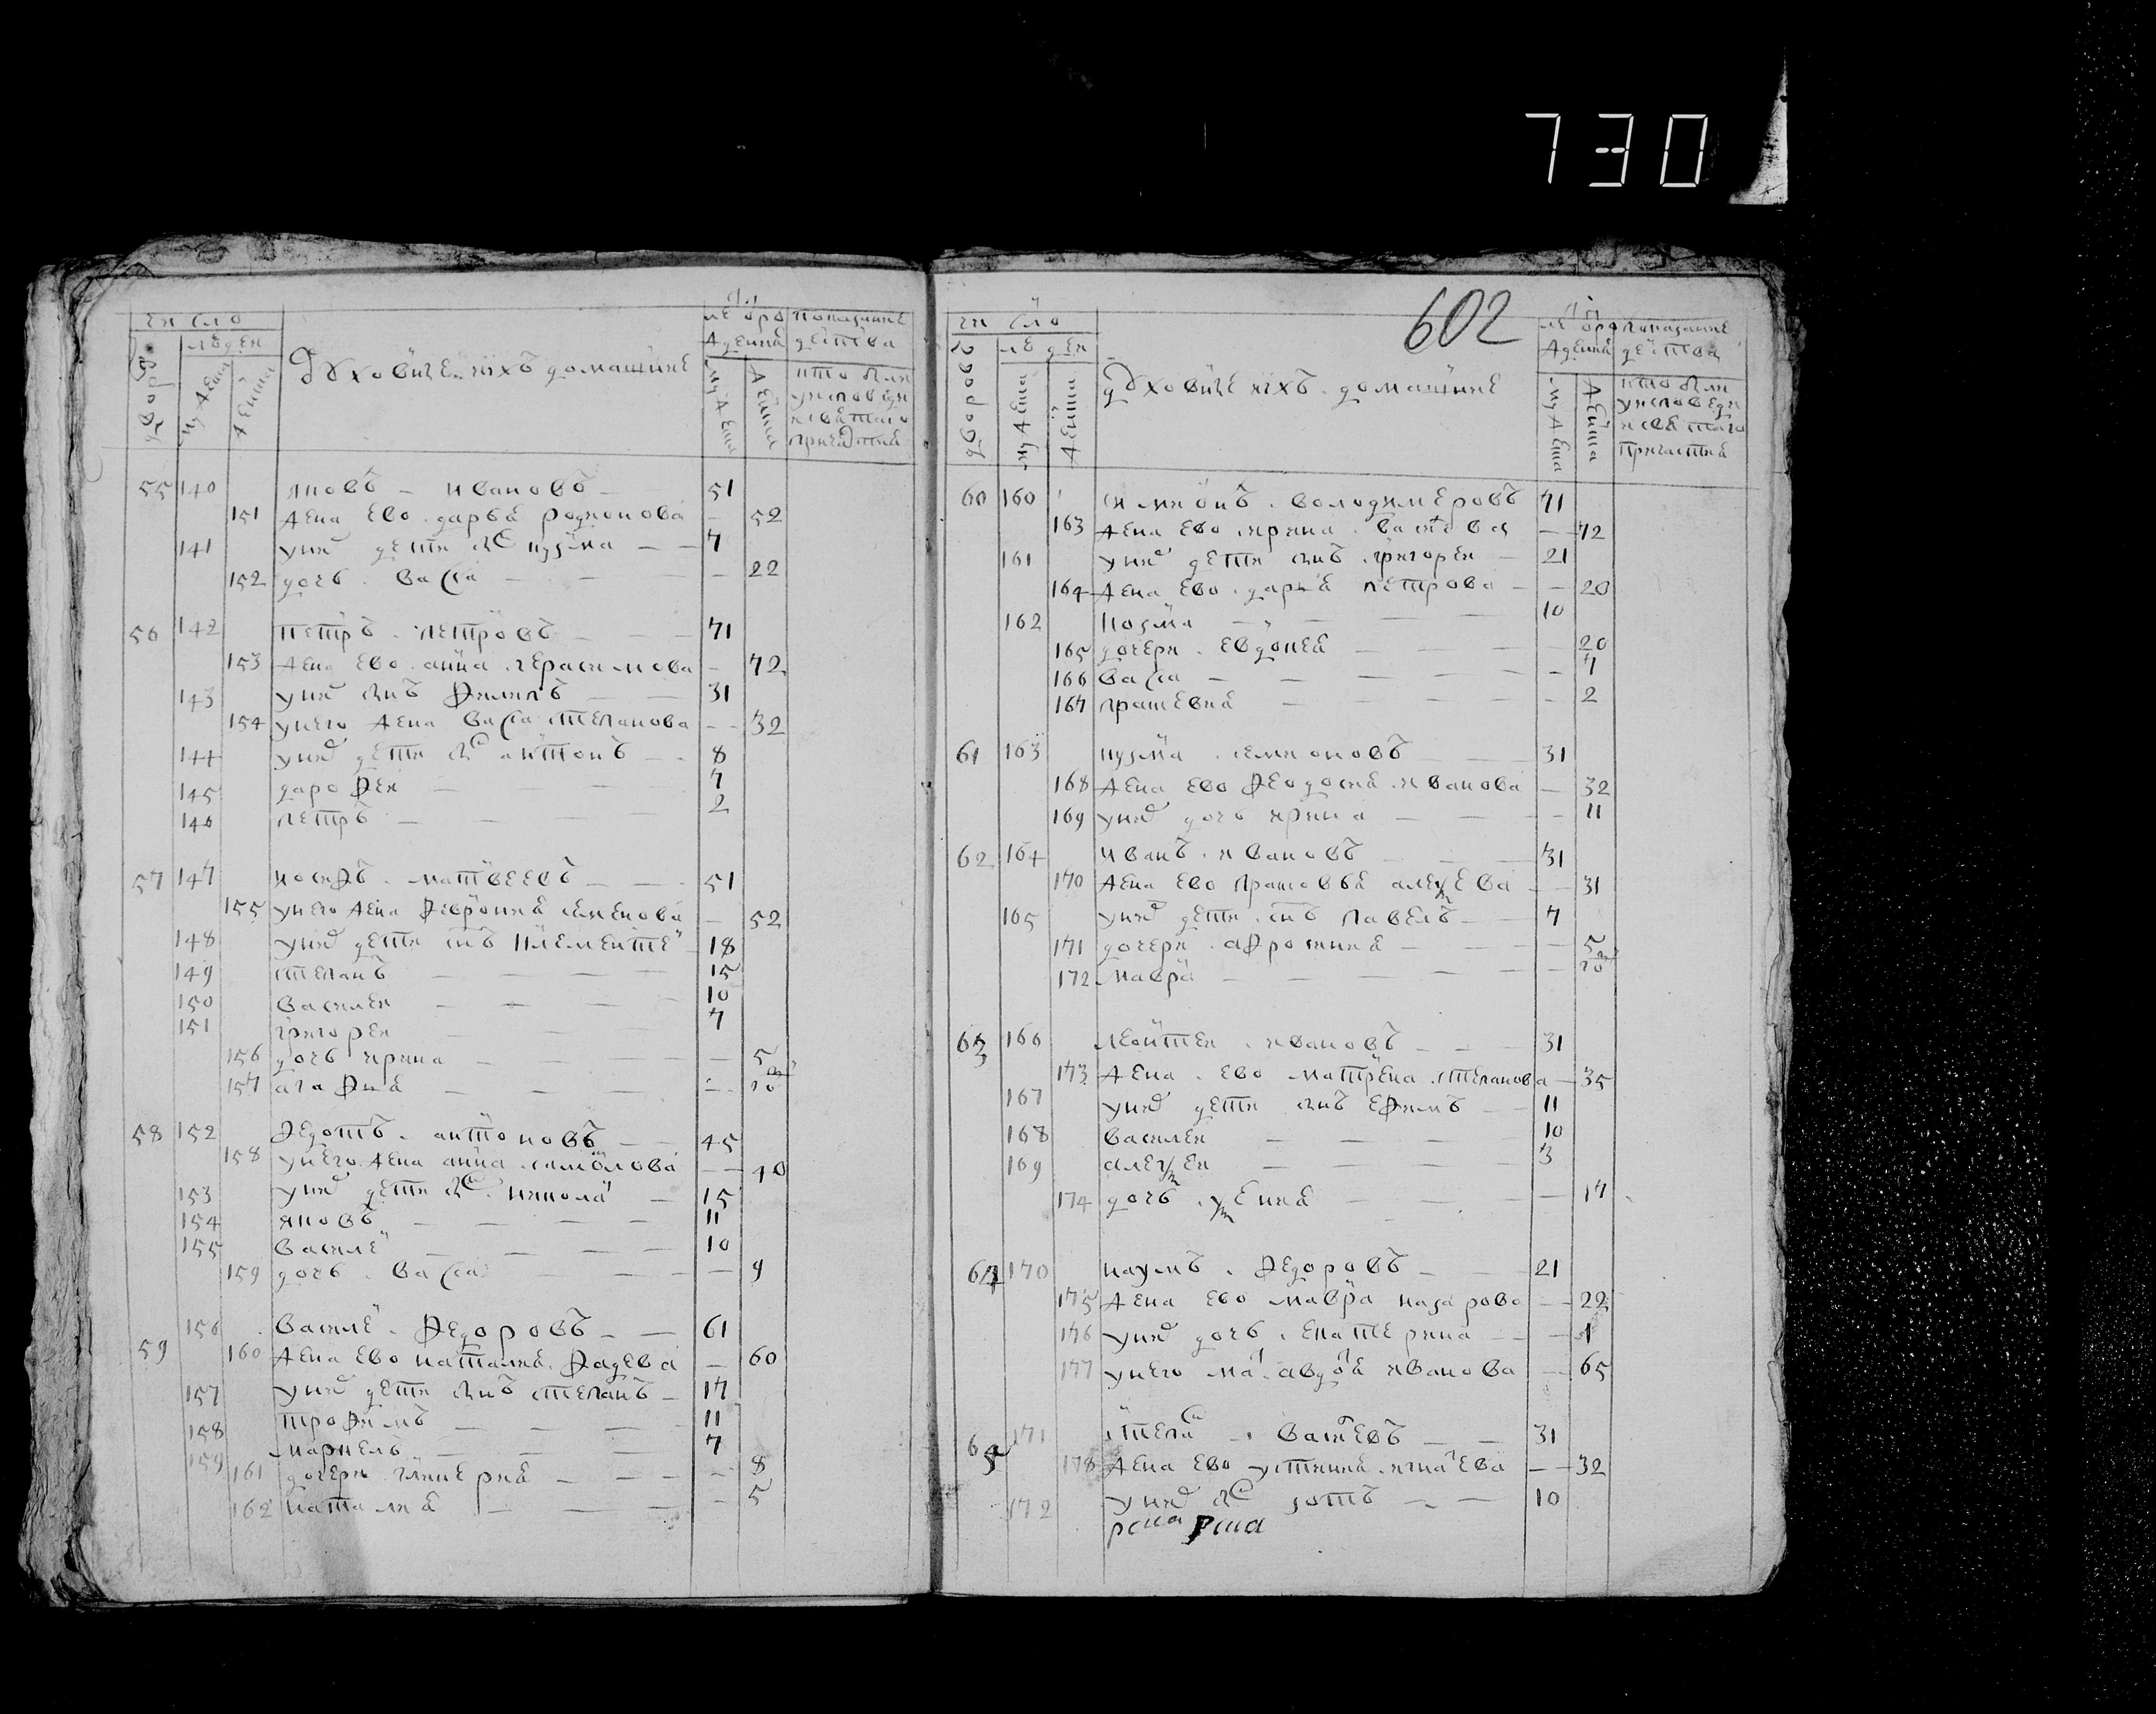 730
число
людей
дворовъ
мужеска
женска
Духовныя ихъ домашние
от рождения
мужеска
женска
показание действа
кто были у исповеди и святаго причастия
55 140 яковъ ивановъ 51
151 жена ево дарья родионова 52
141 у нихъ дети сн кузма 7
152 дочь васса 22
56 142 петръ петровъ 71
153 жена ево анна герасимова 72
143 у них снъ филипъ 31
154 у него жена васса степанова 32
144 у них дети сн антонъ 8
145 дарофеи 7
146 петръ 2
57 147 иосифъ матвеевъ 51
155 у него жена феврония семенова 52
148 у них дети снъ климентеи 18
149 степанъ 15
150 василеи 10
151 григореи 7
156 дочь ирина 5
157 агафия
58 152 федотъ антоновъ 45
158 у него жена анна самоилова 40
153 у них дети сн никола 15
154 яковъ 11
155 василеи 10
159 дочь васса 9
156 василеи федоровъ 61
59 160 жена ево наталия фадеева 60
157 у них дети снъ степанъ 17
158 трофимъ 11
159 карнелъ 7
161 дочери гликерия 8
162 наталия 5
602
число
людей
дворовъ
мужеска
женска
духовныя ихъ домашние
от рождения
мужеска
женска
показание действа
кто были у исповеди и святаго причастия
60 160 симионъ володимеровъ 71
163 жена ево ирина васильева 72
161 у них дети снъ григореи 21
164 жена ево дарья петрова 20
162 козма 10
165 дочери евдокея 20
166 васса 7
167 прасковия 2
61 163 кузма семионовъ 31
168 жена ево феодосия иванова 32
169 у них дочь ирина 11
62 164 иванъ ивановъ 31
170 жена ево прасковья алексеева 31
165 у них дети снъ павелъ 7
171 дочери афросиния 5
172 мавра
63 166 леонтеи ивановъ 31
173 жена ево матрена степанова 35
167 у них дети снъ ефимъ 11
168 василеи 10
169 алексеи 3
174 дочь ксения 17
64 170 наумъ федоровъ 21
175 жена ево мавра назарова 22
176 у них дочь екатерина 1
177 у него мат авдотя иванова 65
65 171 степан васильевъ 31
178 жена ево устиния игнатева 32
172 у них сн зотъ 10